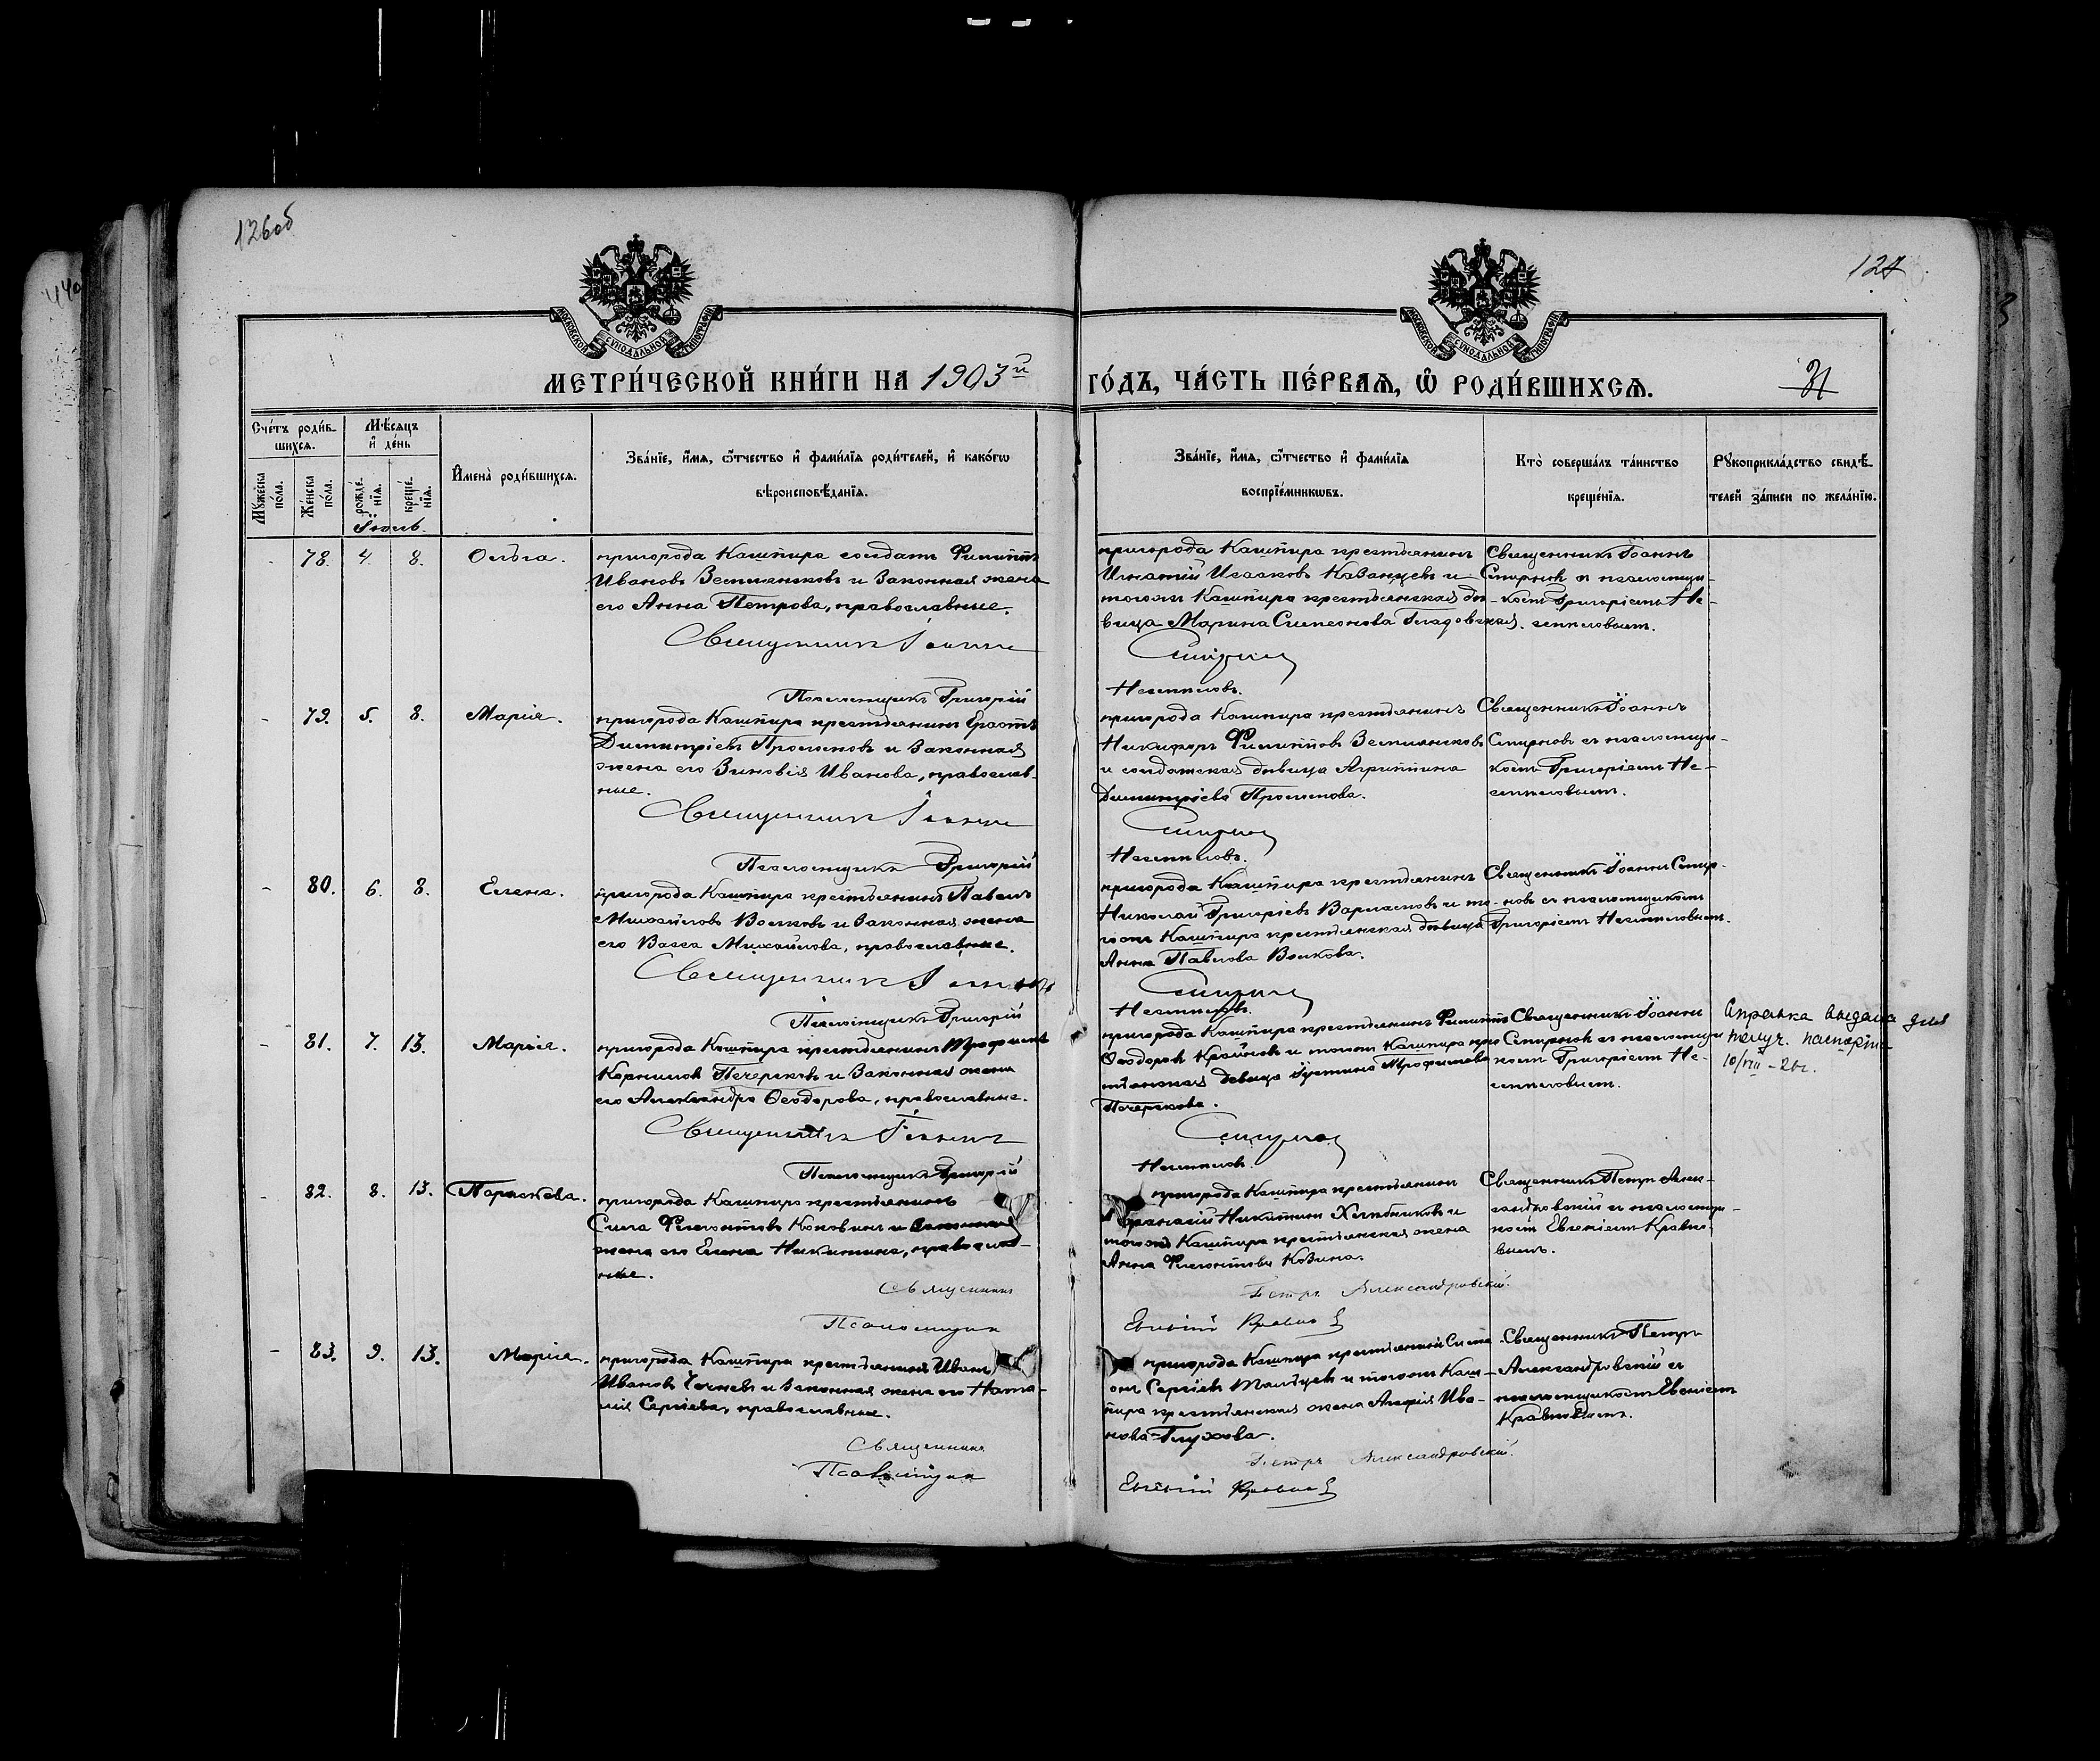 126об
127
МОСКОВСКОЙ СУНОДАЛЬНОЙ ТИПОГРАФІИ
МОСКОВСКОЙ СУНОДАЛЬНОЙ ТИПОГРАФІИ
МЕТРИ́ЧЕСКОЙ КНИ́ГИ НА 1903й
ГО́ДЪ, ЧА́СТЬ ПЕ́РВАѦ, Ѡ РОДИ́ВШИХСѦ.
31
Сче́тъ роди́в-
шихсѧ.
Мꙋ́жеска по́ла.
Же́нска по́ла.
Мѣ́сѧцъ и де́нь
рожде́-нїѧ.
креще́-нїѧ.
Имена̀ роди́вшихсѧ.
Зва́нїе, и́мѧ, ѻ́тчество и фами́лїѧ роди́телей, и како́гѡ
вѣроисповѣ́данїѧ.
Зва́нїе, и́мѧ, ѻ́тчество и фами́лїѧ
воспрїе́мникѡвъ.
Кто̀ соверша́лъ та́инство
креще́нїѧ.
Рꙋкоприкла́дство свидѣ́-
телей за́писи по жела́нїю.
Іюль.
78. 4. 8. Ольга.
пригорода Кашпира солдатъ Филиппъ
Ивановъ Земляниковъ и законная жена
его Анна Петрова, православные.
Священникъ Іоаннъ
пригорода Кашпира крестьянинъ
Игнатій Исааковъ Казанцевъ и
тогожъ Кашпира крестьянская дѣ-
вица Марина Симеонова Гладовская.
Смирнов
Священникъ Іоаннъ
Смирновъ съ псаломщи-
комъ Григоріемъ Не-
смѣловымъ.
Псаломщикъ Григорій
Несмѣловъ.
79. 5. 8. Марія.
пригорода Кашпира крестьянинъ Ерастъ
Димитріевъ Пролеповъ и законная
жена его Зиновія Иванова, православ-
ные.
Священникъ Іоаннъ
пригорода Кашпира крестьянинъ
Никифоръ Филипповъ Земляниковъ
и солдатская дѣвица Агриппина
Димитріева Пролепова.
Смирнов
Священникъ Іоаннъ
Смирновъ съ псаломщи-
комъ Григоріемъ Не-
смѣловымъ.
Псаломщикъ Григорій
Несмѣловъ.
80. 6. 8. Елена.
пригорода Кашпира крестьянинъ Павелъ
Михайловъ Волковъ и законная жена
его Васса Михайлова, православные.
Священникъ Іоаннъ
пригорода Кашпира крестьянинъ
Николай Григоріевъ Варламовъ и то-
гожъ Кашпира крестьянская дѣвица
Анна Павлова Волкова.
Смирнов
Священникъ Іоаннъ Смир-
новъ съ псаломщикомъ
Григоріемъ Несмѣловымъ.
Псаломщикъ Григорій
Несмѣловъ.
81. 7. 13. Марія.
пригорода Кашпира крестьянинъ Трофимъ
Корниловъ Печерсковъ и законная жена
его Александра Ѳеодорова, православные.
Священникъ Іоаннъ
пригорода Кашпира крестьянинъ Филиппъ
Ѳеодоровъ Крайновъ и тогожъ Кашпира кре-
стьянская дѣвица Іустина Трофимова
Печерскова.
Смирнов
Священникъ Іоаннъ
Смирновъ съ псаломщи-
комъ Григоріемъ Не-
смѣловымъ.
Справка выдана для
получ. паспорта
10/VIII-26г.
Псаломщикъ Григорій
Несмѣловъ.
82. 8. 13. Параскева.
пригорода Кашпира крестьянинъ
Сила Филиповъ Коновъ и законная
жена его Елена Никитина, православ-
ные.
Священникъ
Псаломщикъ
пригорода Кашпира крестьянинъ
Афанасій Никитинъ Хлѣбниковъ и
тогожъ Кашпира крестьянская жена
Анна Козина.
Петръ Александровскій.
Евгеній Кравков
Священникъ Петръ Алек-
сандровскій съ псаломщи-
комъ Евгеніемъ Кравко-
вымъ.
83. 9. 13. Марія.
пригорода Кашпира крестьянинъ Иванъ
Ивановъ и законная жена его Ната-
лія Сергіева, православные.
Священникъ
Псаломщикъ
пригорода Кашпира крестьянинъ Симе-
онъ Сергіевъ Мальцевъ и тогожъ Каш-
пира крестьянская жена Агафія Ива-
нова Глухова.
Петръ Александровскій.
Евгеній Кравков
Священникъ Петръ
Александровскій съ
псаломщикомъ Евгеніемъ
Кравковымъ.